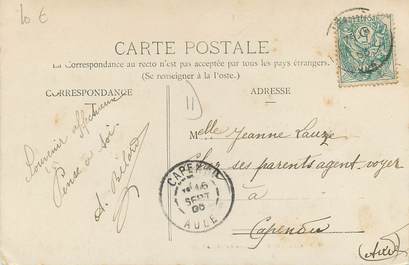 10 €
CARTE POSTALE
La Correspondance au recto n'est pas acceptée par tous les pays étrangers.
(Se renseigner à la Poste.)
CORRESPONDANCE
ADRESSE
11
Souvenir affectueux
Pence à toi.
A.
Melle Jeanne Lauze
Chez ses parents agent-voyer
à
Capendu
(Aude)
CAPENDU
16
SEPT
05
AUDE